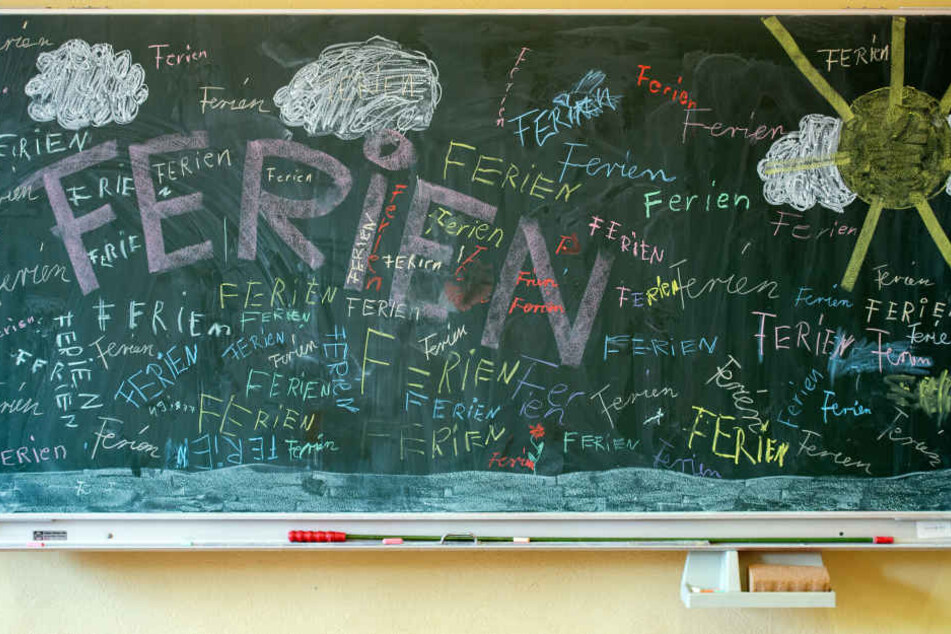 Ferien
Ferien
FERIEN
Ferien
Ferien
FERIEN
Ferien
FERIEN
Ferien
FERiEN
FERIEN
FERiEN
FERIEN
Ferien
Ferien
FERIEN
Ferien
Ferien
FERIE
Ferien
FERIEN
FERIEN
FERIE
Ferien
FERIEN
Ferien
Ferien
Ferien
FERIEN
FERIEN
Ferien
Ferien
FERIEN
FERIEN
FERIEN
Ferien
FERIEN
FERIEN
FERIEN
Ferien
FERIEN
FERIEN
Ferien
FERIEN
FERIEN
Ferien
FERIEN
FERIEN
FERIEN
Ferien
Ferien
Ferien
FERIEN
FERIEN
Ferien
Ferien
FERIEN
FERIEN
Ferien
FERIEN
FERIEN
Ferien
Ferien
Ferien